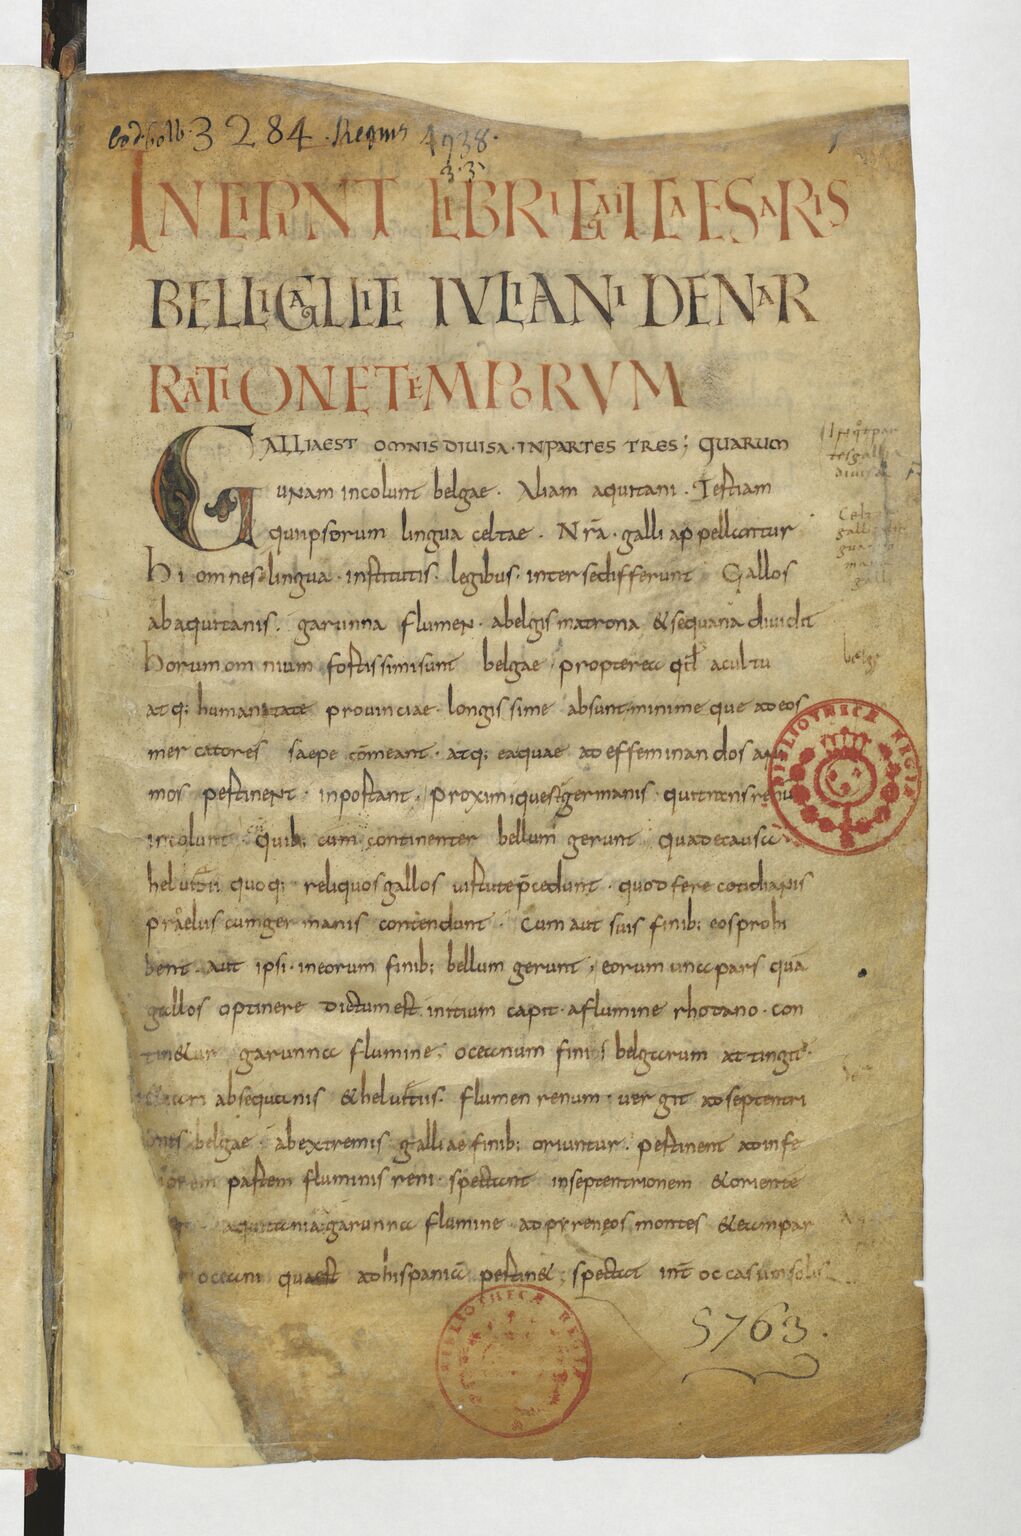 Cod. Colb. 3284. Regius 4938.
3.3.
INCIPIUNT LIBRI GAII CAESARIS
BELLI GALLICI IULIANI DE NAR
RATIONE TEMPORUM
GALLIA EST OMNIS DIVISA · IN PARTES TRES; QUARUM
unam incolunt belgae · Aliam aquitani · Tertiam
qui ipsorum lingua celtae · Nr̄a · galli appellantur
Hi omnes · lingua · institutis · legibus · inter se differunt Gallos
ab aquitanis · garunna flumen · a belgis matrona & sequana diuidit
Horum omnium fortissimi sunt belgae propterea qđ a cultu
atq; humanitate prouinciae longissime absunt minime que ad eos
mercatores saepe cōmeant · atq; ea quae ad effeminandos ani
mos pertinent · inportant · proximi que s̄ germanis · qui trans renū
incolunt Quib; cum continenter bellum gerunt qua de causa
heluitii quoq; reliquos gallos uirtute p̄cedunt · quod fere cotidianis
praeliis cum germanis contendunt · Cum aut suis finib; eos prohi
bent · aut ipsi · in eorum finib; bellum gerunt, eorum una pars quā
gallos optinere dictum est initium capit a flumine rhodano · con
tin&ur garunna flumine, oceanum finis belgarum attingit ·
&iam ab sequanis & heluitiis · flumen renum · uergit ad septentri
ones belgae ab extremis galliae finib; oriuntur · pertinent ad infe
orem partem fluminis reni · spectant in septentrionem & orientē
aquitania garunna flumine ad pyreneos montes & eam par
oceani quae est ad hispaniā pertin& ; spectat int̄ occasum solis
belge
BIBLIOTHECÆ REGIÆ
BIBLIOTHECÆ REGIÆ
5763.